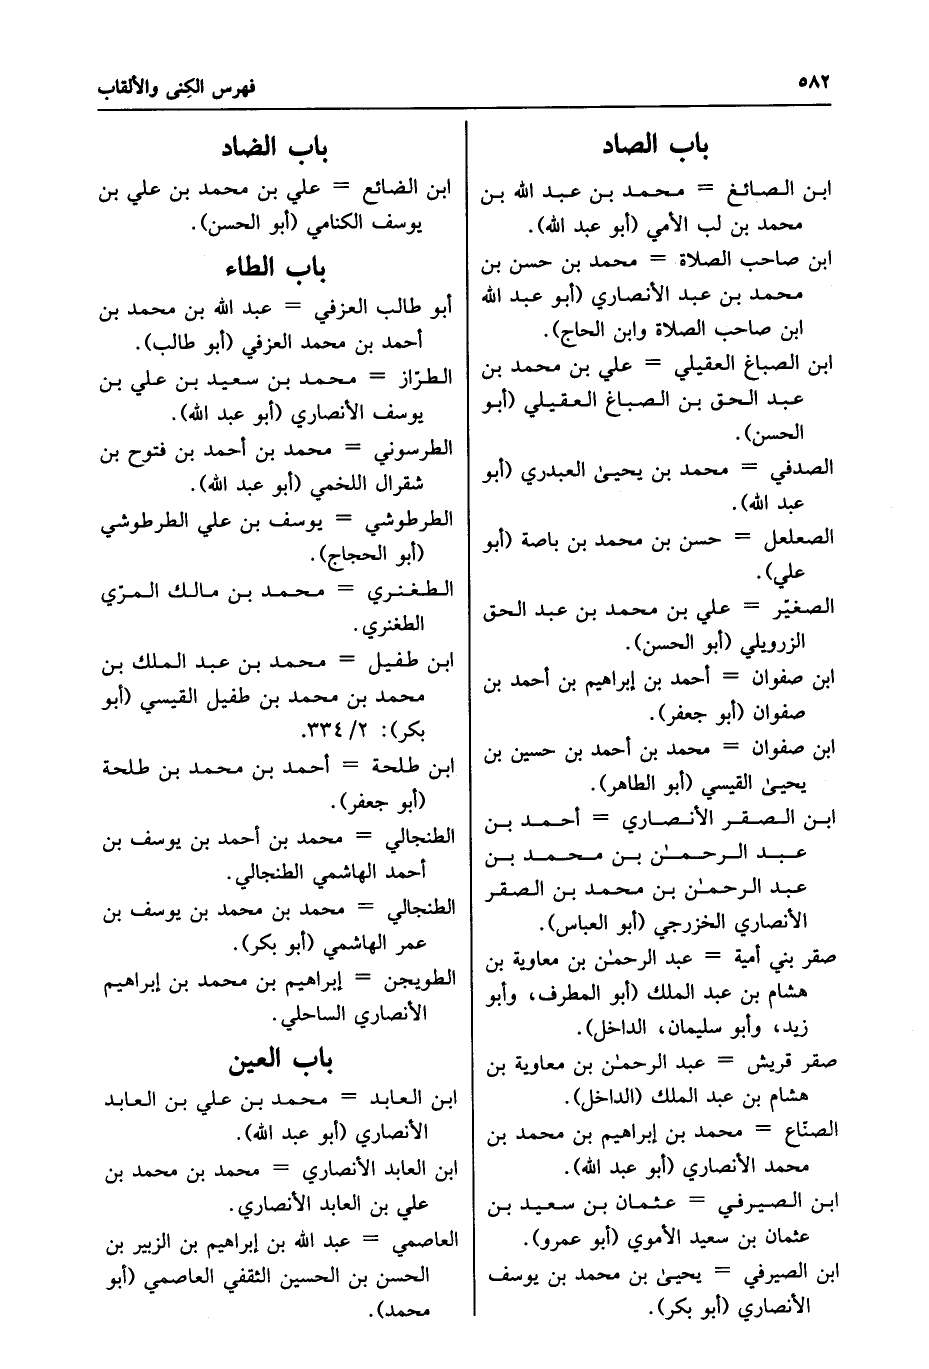 ٥٨٢
فهرس الكِنى والألقاب
باب الصاد
ابن الصائغ = محمد بن عبد الله بن
محمد بن لب الأمي (أبو عبد الله).
ابن صاحب الصلاة = محمد بن حسن بن
محمد بن عبد الأنصاري (أبو عبد الله
ابن صاحب الصلاة وابن الحاج).
ابن الصباغ العقيلي = علي بن محمد بن
عبد الحق بن الصباغ العقيلي (أبو
الحسن).
الصدفي = محمد بن يحيىٰ العبدري (أبو
عبد الله).
الصعلعل = حسن بن محمد بن باصة (أبو
علي).
الصغيّر = علي بن محمد بن عبد الحق
الزرويلي (أبو الحسن).
ابن صفوان = أحمد بن إبراهيم بن أحمد بن
صفوان (أبو جعفر).
ابن صفوان = محمد بن أحمد بن حسين بن
يحيىٰ القيسي (أبو الطاهر).
ابن الصقر الأنصاري = أحمد بن
عبد الرحمـٰن بن محمد بن
عبد الرحمـٰن بن محمد بن الصقر
الأنصاري الخزرجي (أبو العباس).
صقر بني أمية = عبد الرحمـٰن بن معاوية بن
هشام بن عبد الملك (أبو المطرف، وأبو
زيد، وأبو سليمان، الداخل).
صقر قريش = عبد الرحمـٰن بن معاوية بن
هشام بن عبد الملك (الداخل).
الصنّاع = محمد بن إبراهيم بن محمد بن
محمد الأنصاري (أبو عبد الله).
ابن الصيرفي = عثمان بن سعيد بن
عثمان بن سعيد الأموي (أبو عمرو).
ابن الصيرفي = يحيىٰ بن محمد بن يوسف
الأنصاري (أبو بكر).
باب الضاد
ابن الضائع = علي بن محمد بن علي بن
يوسف الكنامي (أبو الحسن).
باب الطاء
أبو طالب العزفي = عبد الله بن محمد بن
أحمد بن محمد العزفي (أبو طالب).
الطرّاز = محمد بن سعيد بن علي بن
يوسف الأنصاري (أبو عبد الله).
الطرسوني = محمد بن أحمد بن فتوح بن
شقرال اللخمي (أبو عبد الله).
الطرطوشي = يوسف بن علي الطرطوشي
(أبو الحجاج).
الطغنري = محمد بن مالك المرّي
الطغنري.
ابن طفيل = محمد بن عبد الملك بن
محمد بن محمد بن طفيل القيسي (أبو
بكر): ٢/ ٣٣٤.
ابن طلحة = أحمد بن محمد بن طلحة
(أبو جعفر).
الطنجالي = محمد بن أحمد بن يوسف بن
أحمد الهاشمي الطنجالي.
الطنجالي = محمد بن محمد بن يوسف بن
عمر الهاشمي (أبو بكر).
الطويجن = إبراهيم بن محمد بن إبراهيم
الأنصاري الساحلي.
باب العين
ابن العابد = محمد بن علي بن العابد
الأنصاري (أبو عبد الله).
ابن العابد الأنصاري = محمد بن محمد بن
علي بن العابد الأنصاري.
العاصمي = عبد الله بن إبراهيم بن الزبير بن
الحسن بن الحسين الثقفي العاصمي (أبو
محمد).